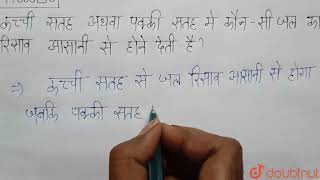 कच्ची सतह अथवा पक्की सतह मे कौन-सी जल का
रिसाव आसानी से होने देती है?
⇒ कच्ची सतह से जल रिसाव आसानी से होगा
जबकि पक्की सतह
doubtnut